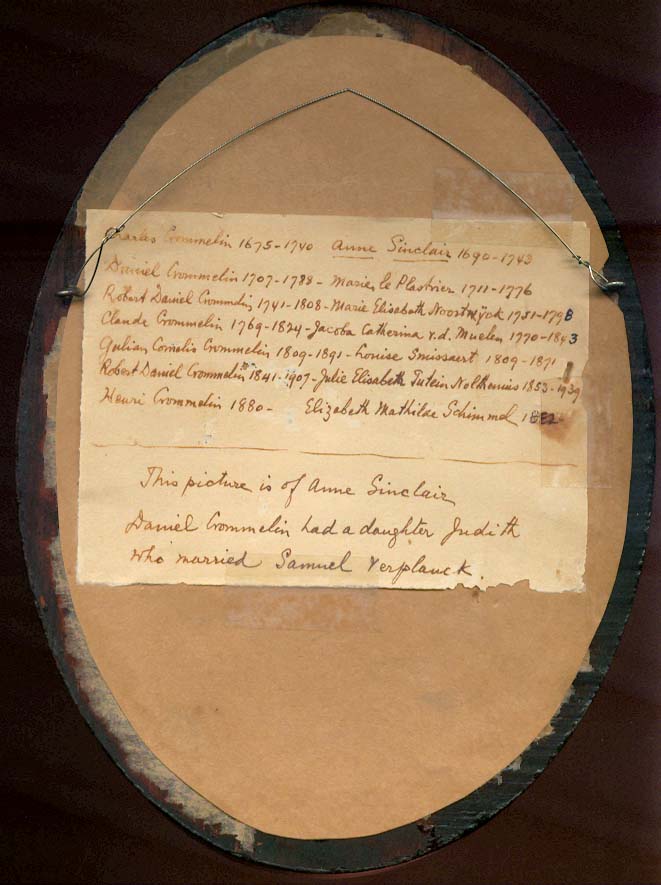 Charles Crommelin 1675-1740 Anne Sinclair 1690-1743
Daniel Crommelin 1707-1788 - Marie le Plastrier 1711-1776
Robert Daniel Crommelin 1741-1808 - Marie Elisabeth Noortwÿck 1751-1798
Claude Crommelin 1769-1824 - Jacoba Catherina v.d. Muelen 1770-1843
Gulian Cornelis Crommelin 1809-1891 - Louise Smissaert 1809-1871
Robert Daniel Crommelin 1841-1907 - Julie Elisabeth Tutein Nolthenius 1853-1939
Henri Crommelin 1880- Elizabeth Mathilde Schimmel 1882-
This picture is of Anne Sinclair
Daniel Crommelin had a daughter Judith
who married Samuel Verplanck.